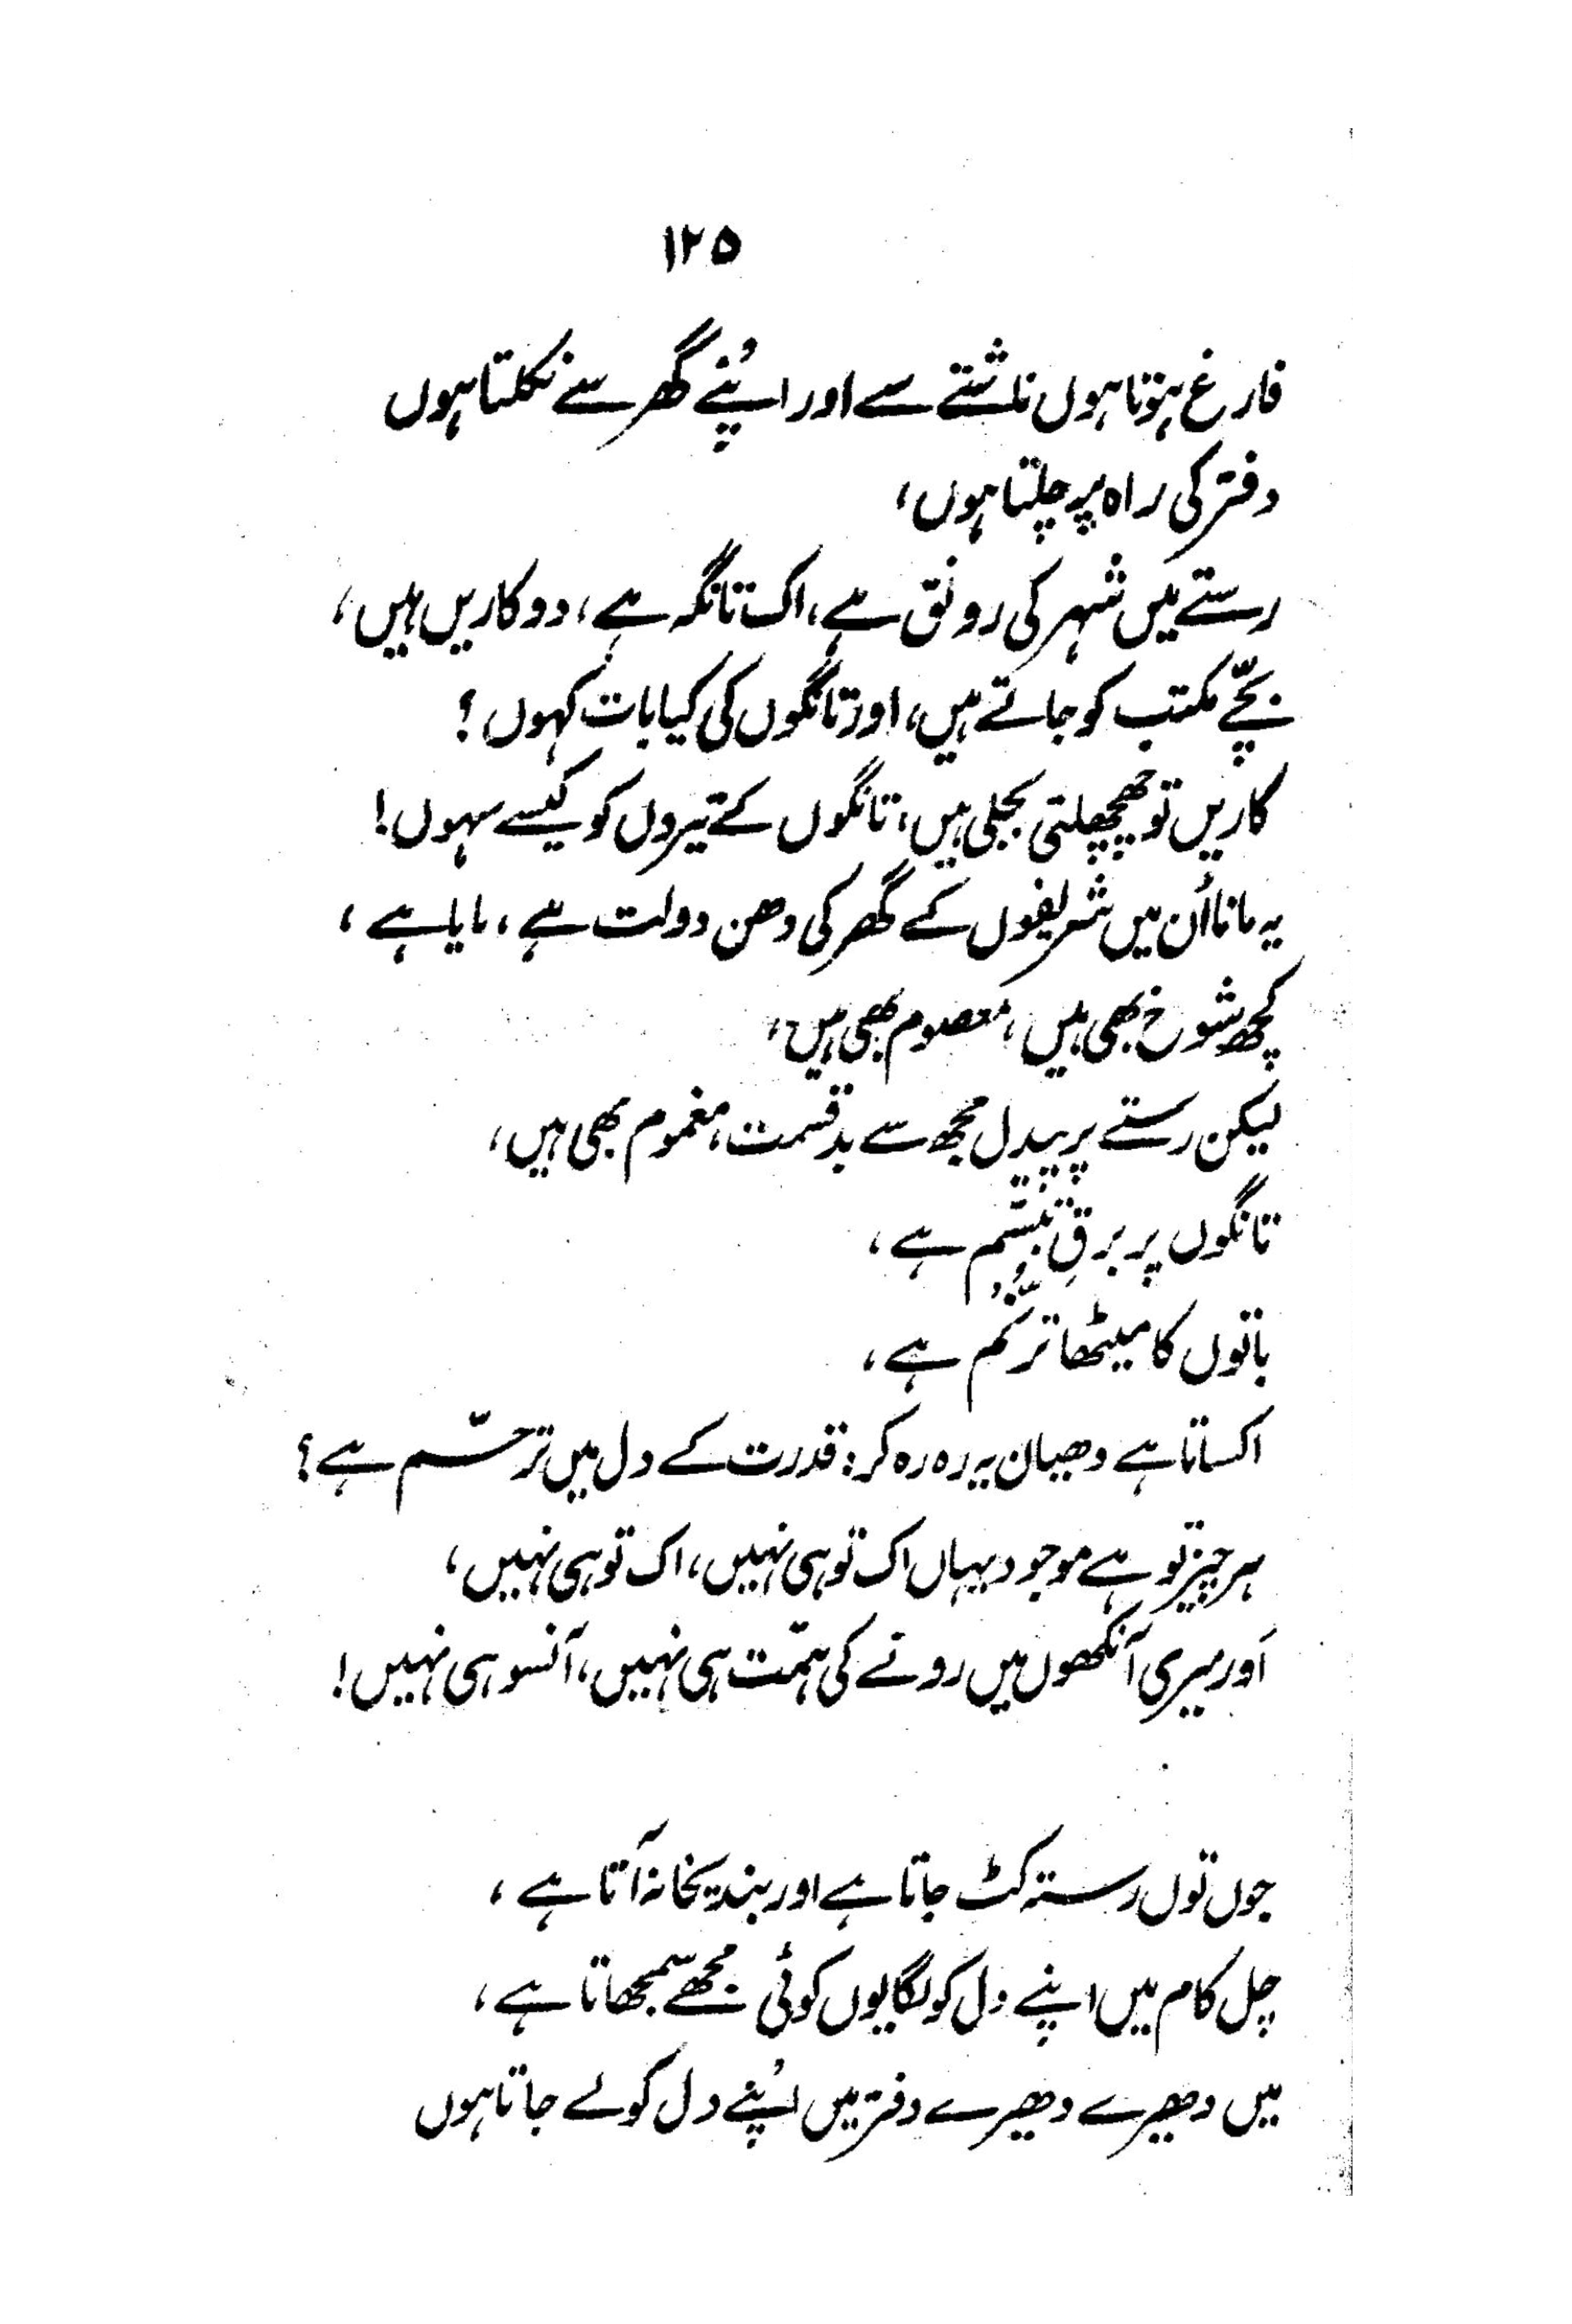 ۱۲۵
فارغ ہوتا ہوں ناشتے سے اور اپنے گھر سے نکلتا ہوں
دفتر کی راہ پر چلتا ہوں،
رستے میں شہر کی رونق ہے، اک تانگہ ہے، دو کاریں ہیں،
بچّے مکتب کو جاتے ہیں، اور تانگوں کی کیا بات کہوں؟
کاریں تو چھچھلتی بجلی ہیں، تانگوں کے تیروں کو کیسے سہوں!
یہ مانا اُن میں شریفوں کے گھر کی دھن دولت ہے، مایا ہے،
کچھ شوخ بھی ہیں، معصوم بھی ہیں،
لیکن رستے پر پیدل مجھ سے بدقسمت، مغموم بھی ہیں،
تانگوں پر برقِ تبسّم ہے،
باتوں کا میٹھا ترنّم ہے،
اکساتا ہے دھیان یہ رہ رہ کر: قدرت کے دل میں ترحّم ہے؟
ہر چیز تو ہے موجود یہاں اک تو ہی نہیں، اک تو ہی نہیں،
اَور میری آنکھوں میں رونے کی ہمّت ہی نہیں، آنسو ہی نہیں!
جوں توں رستہ کٹ جاتا ہے اور بندیخانہ آتا ہے،
چل کام میں اپنے دل کو لگا یوں کوئی مجھے سمجھاتا ہے،
میں دھیرے دھیرے دفتر میں اپنے دل کو لے جاتا ہوں